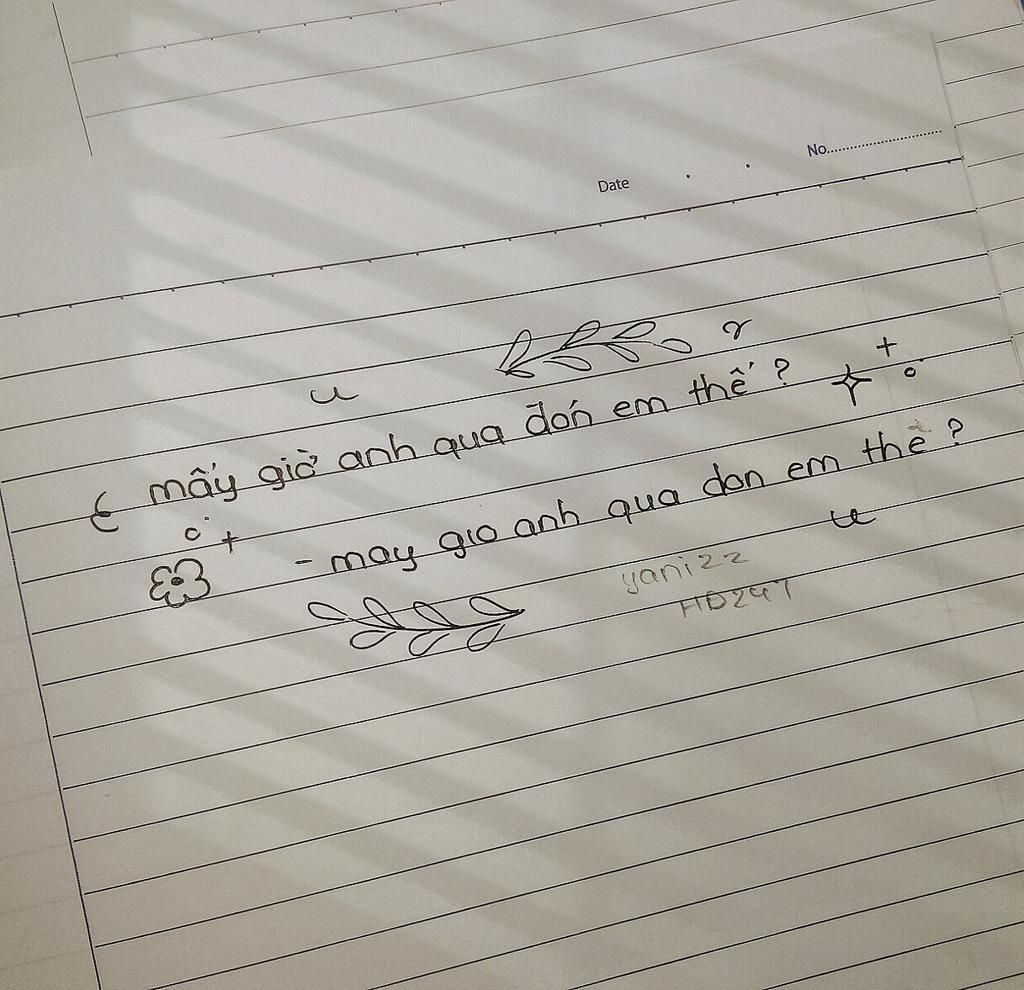 No.
Date
mấy giờ anh qua đón em thế?
- may gio anh qua don em thê?
yanizz
HD247